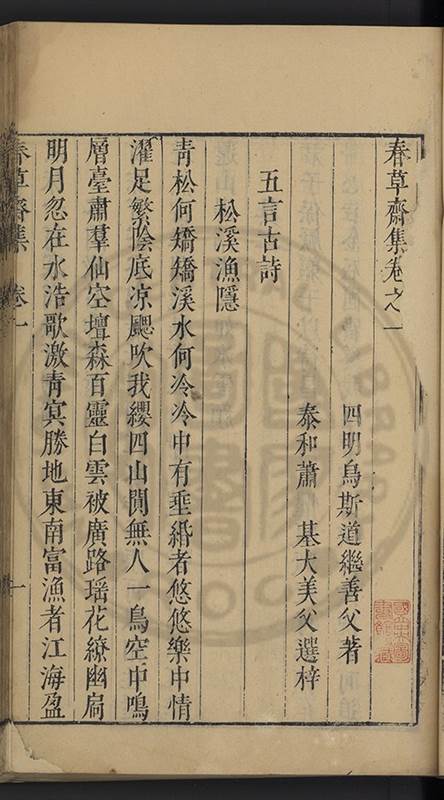 春草齋集卷之一
四明烏斯道繼善父著
泰和蕭基大美父選梓
五言古詩
松溪漁隱
靑松何矯矯溪水何冷冷中有垂緡者悠悠樂中情
濯足繁陰底凉颸吹我纓四山閴無人一鳥空中鳴
層臺肅羣仙空壇森百靈白雲被廣路瑤花繚幽扃
明月忽在水浩歌激靑冥勝地東南富漁者江海盈
春草齋集 卷一 一